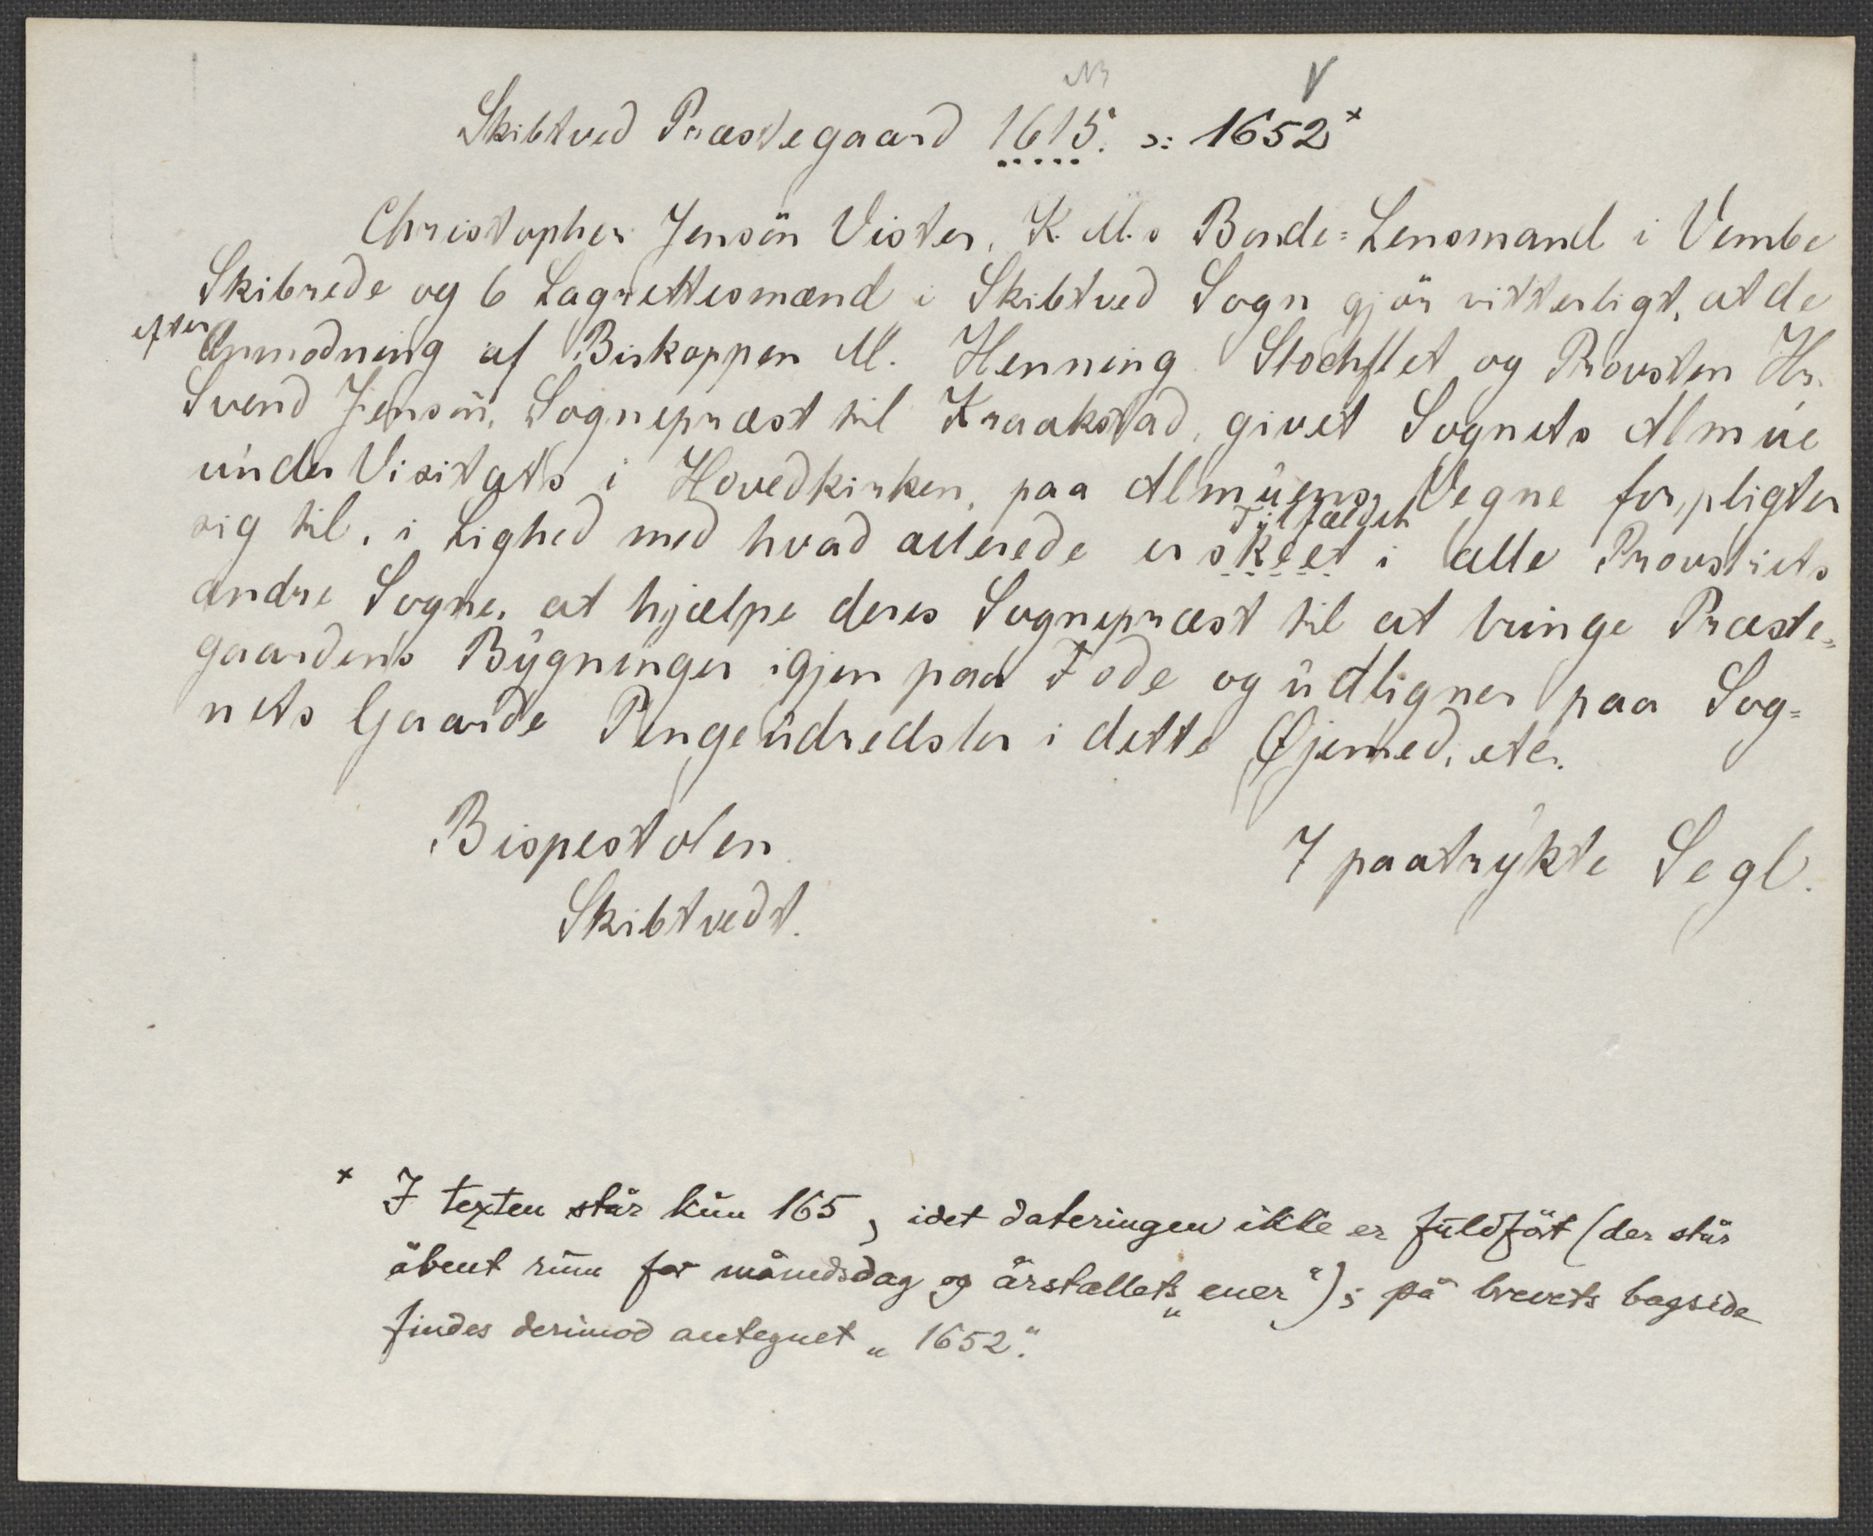 Skibtved Præstegaard 1615. ɔ: 1652 ×
Christopher Jensön Vister, K. M.s Bonde-Lensmand i Vembe
Skibrede og 6 Lagrettesmænd i Skibtved Sogn gjör vitterligt, at de
efter Anmodning af Biskoppen M. Henning Stochflet og Provsten Hr.
Svend Jensön, Sognepræst til Kraakstad, givet Sognets Almue
under Visitats i Hovedkirken, paa Almuens Vegne forpligter
Tilfældet
sig til, i Lighed med hvad allerede er skeet i alle Provstiets
andre Sogne, at hjælpe deres Sognepræst til at bringe Præste-
gaardens Bygninger igjen paa Fode og udligner paa Sog-
nets Gaarde Pengeudredsler i dette Øjemed, etc.
Bispestolen
7 paatrykte Segl.
Skibtvedt.
× I texten står kun 165 , idet dateringen ikke er fuldført (der står
åbent rum for månedsdag og årstallets „ener“); på brevets bagside
findes derimod antegnet „1652“.